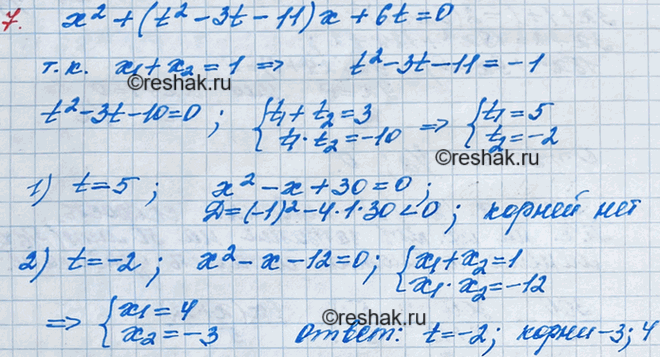 7. x² + (t² - 3t - 11)x + 6t = 0
т.к. x₁ + x₂ = 1 ⇒ t² - 3t - 11 = -1
©reshak.ru
t² - 3t - 10 = 0 ; { t₁ + t₂ = 3 ⇒ { t₁ = 5
t₁ · t₂ = -10 t₂ = -2
©reshak.ru
1) t = 5 ; x² - x + 30 = 0 ;
Д = (-1)² - 4·1·30 < 0 ; корней нет
2) t = -2 ; x² - x - 12 = 0 ; { x₁ + x₂ = 1
x₁ · x₂ = -12
⇒ { x₁ = 4
x₂ = -3 ответ: t = -2 ; корни -3 ; 4
©reshak.ru